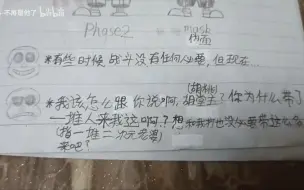 不再重刑了 bilibili
Phase2
mask
伪面
*有些时候战斗没有任何必要,但现在...
(胡桃)
*我该怎么跟你说啊,胡堂主?你为什么带了
一堆人来我这啊.?想和我打也没必要带这么
(指一堆二次元老婆)
来吧?